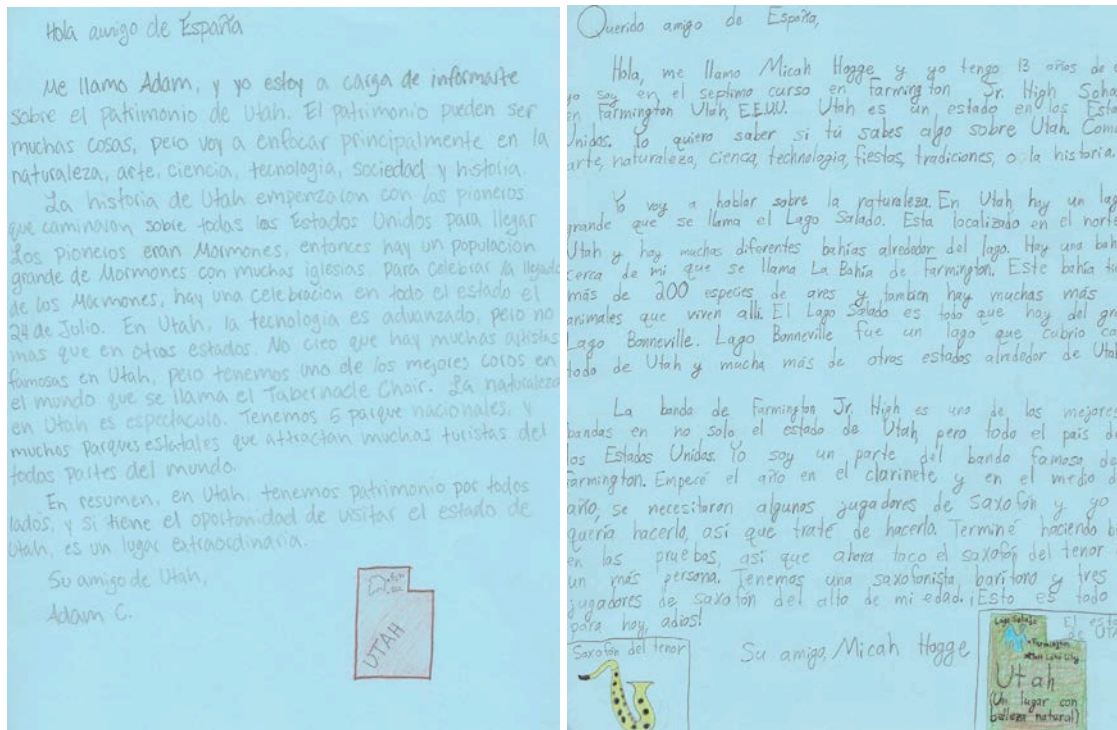 Hola amigo de España
Me llamo Adam, y yo estoy a carga de informarte
sobre el patrimonio de Utah. El patrimonio pueden ser
muchas cosas, pero voy a enfocar principalmente en la
naturaleza, arte, ciencia, tecnología, sociedad y historia.
La historia de Utah empenzaron con los pioneros
que caminaron sobre todas los Estados Unidos para llegar
Los pioneros eran Mormones, entonces hay un populación
grande de Mormones con muchas iglesias. Para celebrar la llegada
de los Mormones, hay una celebracion en todo el estado el
24 de Julio. En Utah, la tecnología es advanzado, pero no
mas que en otros estados. No creo que hay muchas artistas
famosas en Utah, pero tenemos uno de los mejores coros en
el mundo que se llama el Tabernacle Choir. La naturaleza
en Utah es espectaculo. Tenemos 5 parque nacionales, y
muchos parques estatales que attractan muchas turistas del
todas partes del mundo.
En resumen, en Utah, tenemos patrimonio por todos
lados, y si tiene el oportunidad de visitar el estado de
Utah, es un lugar extraordinaria.
Su amigo de Utah,
Adam C.
UTAH
Querido amigo de España,
Hola, me llamo Micah Hogge y yo tengo 13 años de
yo soy en el septimo curso en Farmington Jr. High
en Farmington Utah, EE.UU. Utah es un estado en los
Unidos. Yo quiero saber si tú sabes algo sobre Utah. Como
arte, naturaleza, cienca, technologia, fiestas, tradiciones, o la historia.
Yo voy a hablar sobre la naturaleza. En Utah hay un
grande que se llama el Lago Salado. Esta localizado en el
Utah y hay muchas diferentes bahías alrededor del lago. Hay una
cerca de mi que se llama La Bahía de Farmington. Este bahía
más de 200 especies de aves y tambien hay muchas más
animales que viven allí. El Lago Salado es todo que hay del
Lago Bonneville. Lago Bonneville fue un lago que cubrio
todo de Utah y mucha más de otros estados alrededor de Utah
La banda de Farmington Jr. High es uno de los mejores
bandas en no solo el estado de Utah pero todo el pais
los Estados Unidos. Yo soy un parte del banda famosa
Farmington. Empecé el año en el clarinete y en el medio
año, se necesitaron algunos jugadores de saxofón y yo
quería hacerlo, así que traté de hacerlo. Terminé haciendo
en las pruebas, así que ahora toco el saxofón del tenor
un más persona. Tenemos una saxofonista barítono y tres
jugadores de saxofón del alto de mi edad. ¡Esto es todo
para hoy, adios!
Su amigo, Micah Hogge
Saxofón del tenor
Lago Salado
Farmington
Salt Lake City
Utah
(Un lugar con
belleza natural)